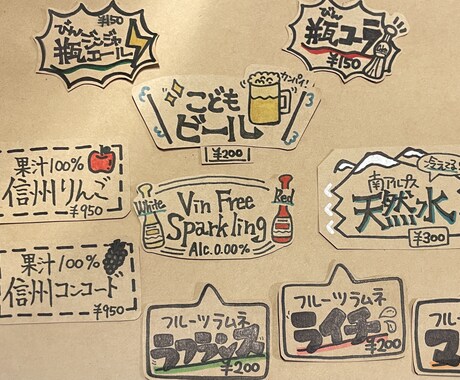 ¥150
びん
瓶
エール
びん
瓶コーラ
¥150
カンパイ!
こども
ビール
¥200
果汁100%
信州りんご
¥950
White
Red
Vin Free
Sparkling
Alc. 0.00%
冷えてる
南アルプス
天然水
¥300
果汁100%
信州コンコード
¥950
フルーツラムネ
ラフランス
¥200
フルーツラムネ
ライチ
¥200
フルーツラ